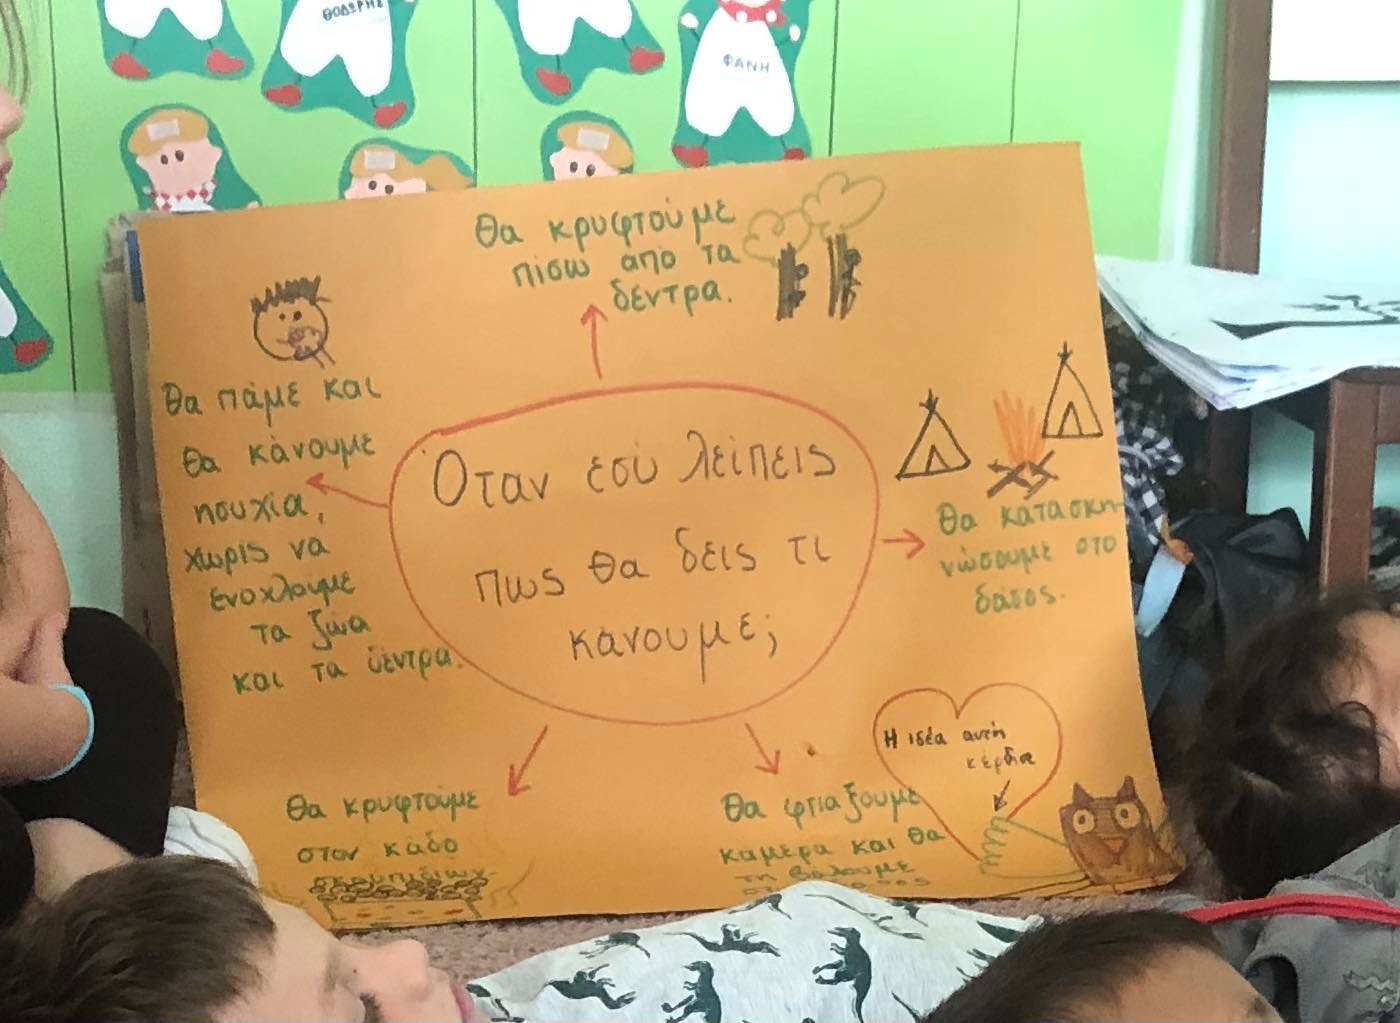 ΘΟΔΩΡΗΣ
ΦΑΝΗ
Θα κρυφτούμε
πίσω από τα
δέντρα.
Θα πάμε και
θα κάνουμε
ησυχία,
χωρίς να
ενοχλούμε
τα ζώα
και τα δέντρα.
Όταν εσύ λείπεις
πως θα δεις τι
κάνουμε;
Θα κατασκη-
νώσουμε στο
δάσος.
Θα κρυφτούμε
στον κάδο
σκουπιδιών
Θα φτιαξουμε
κάμερα και θα
τη βάλουμε
Η ιδέα αυτή
κέρδισε